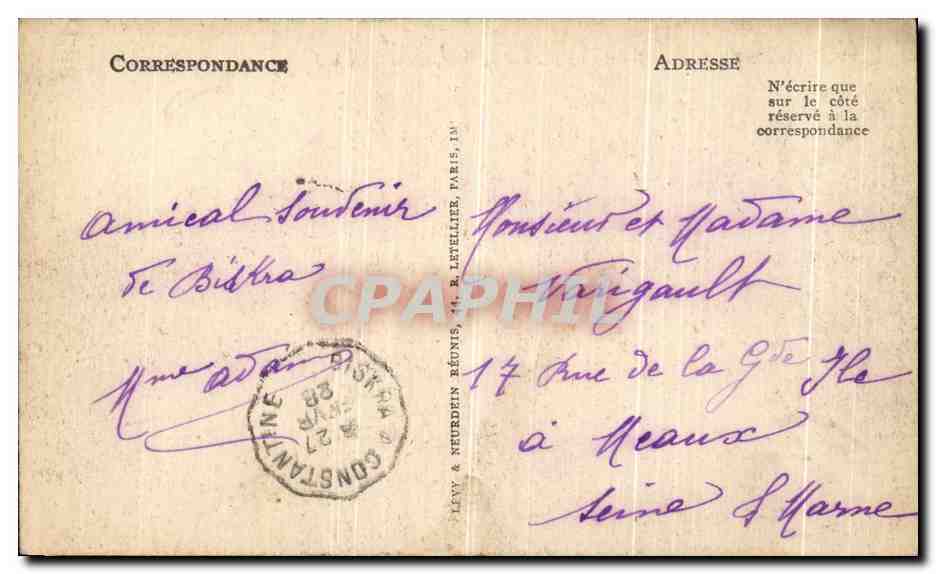 CORRESPONDANCE
amical souvenir
de Biskra
Mme adam
BISKRA CONSTANTINE
27
FEVR
28
LEVY & NEURDEIN RÉUNIS, 44, R. LETELLIER, PARIS, IMP
ADRESSE
N'écrire que
sur le côté
réservé à la
correspondance
Monsieur et Madame
Varigault
17 Rue de la Gde Ile
à Meaux
Seine & Marne
CPAPHIL